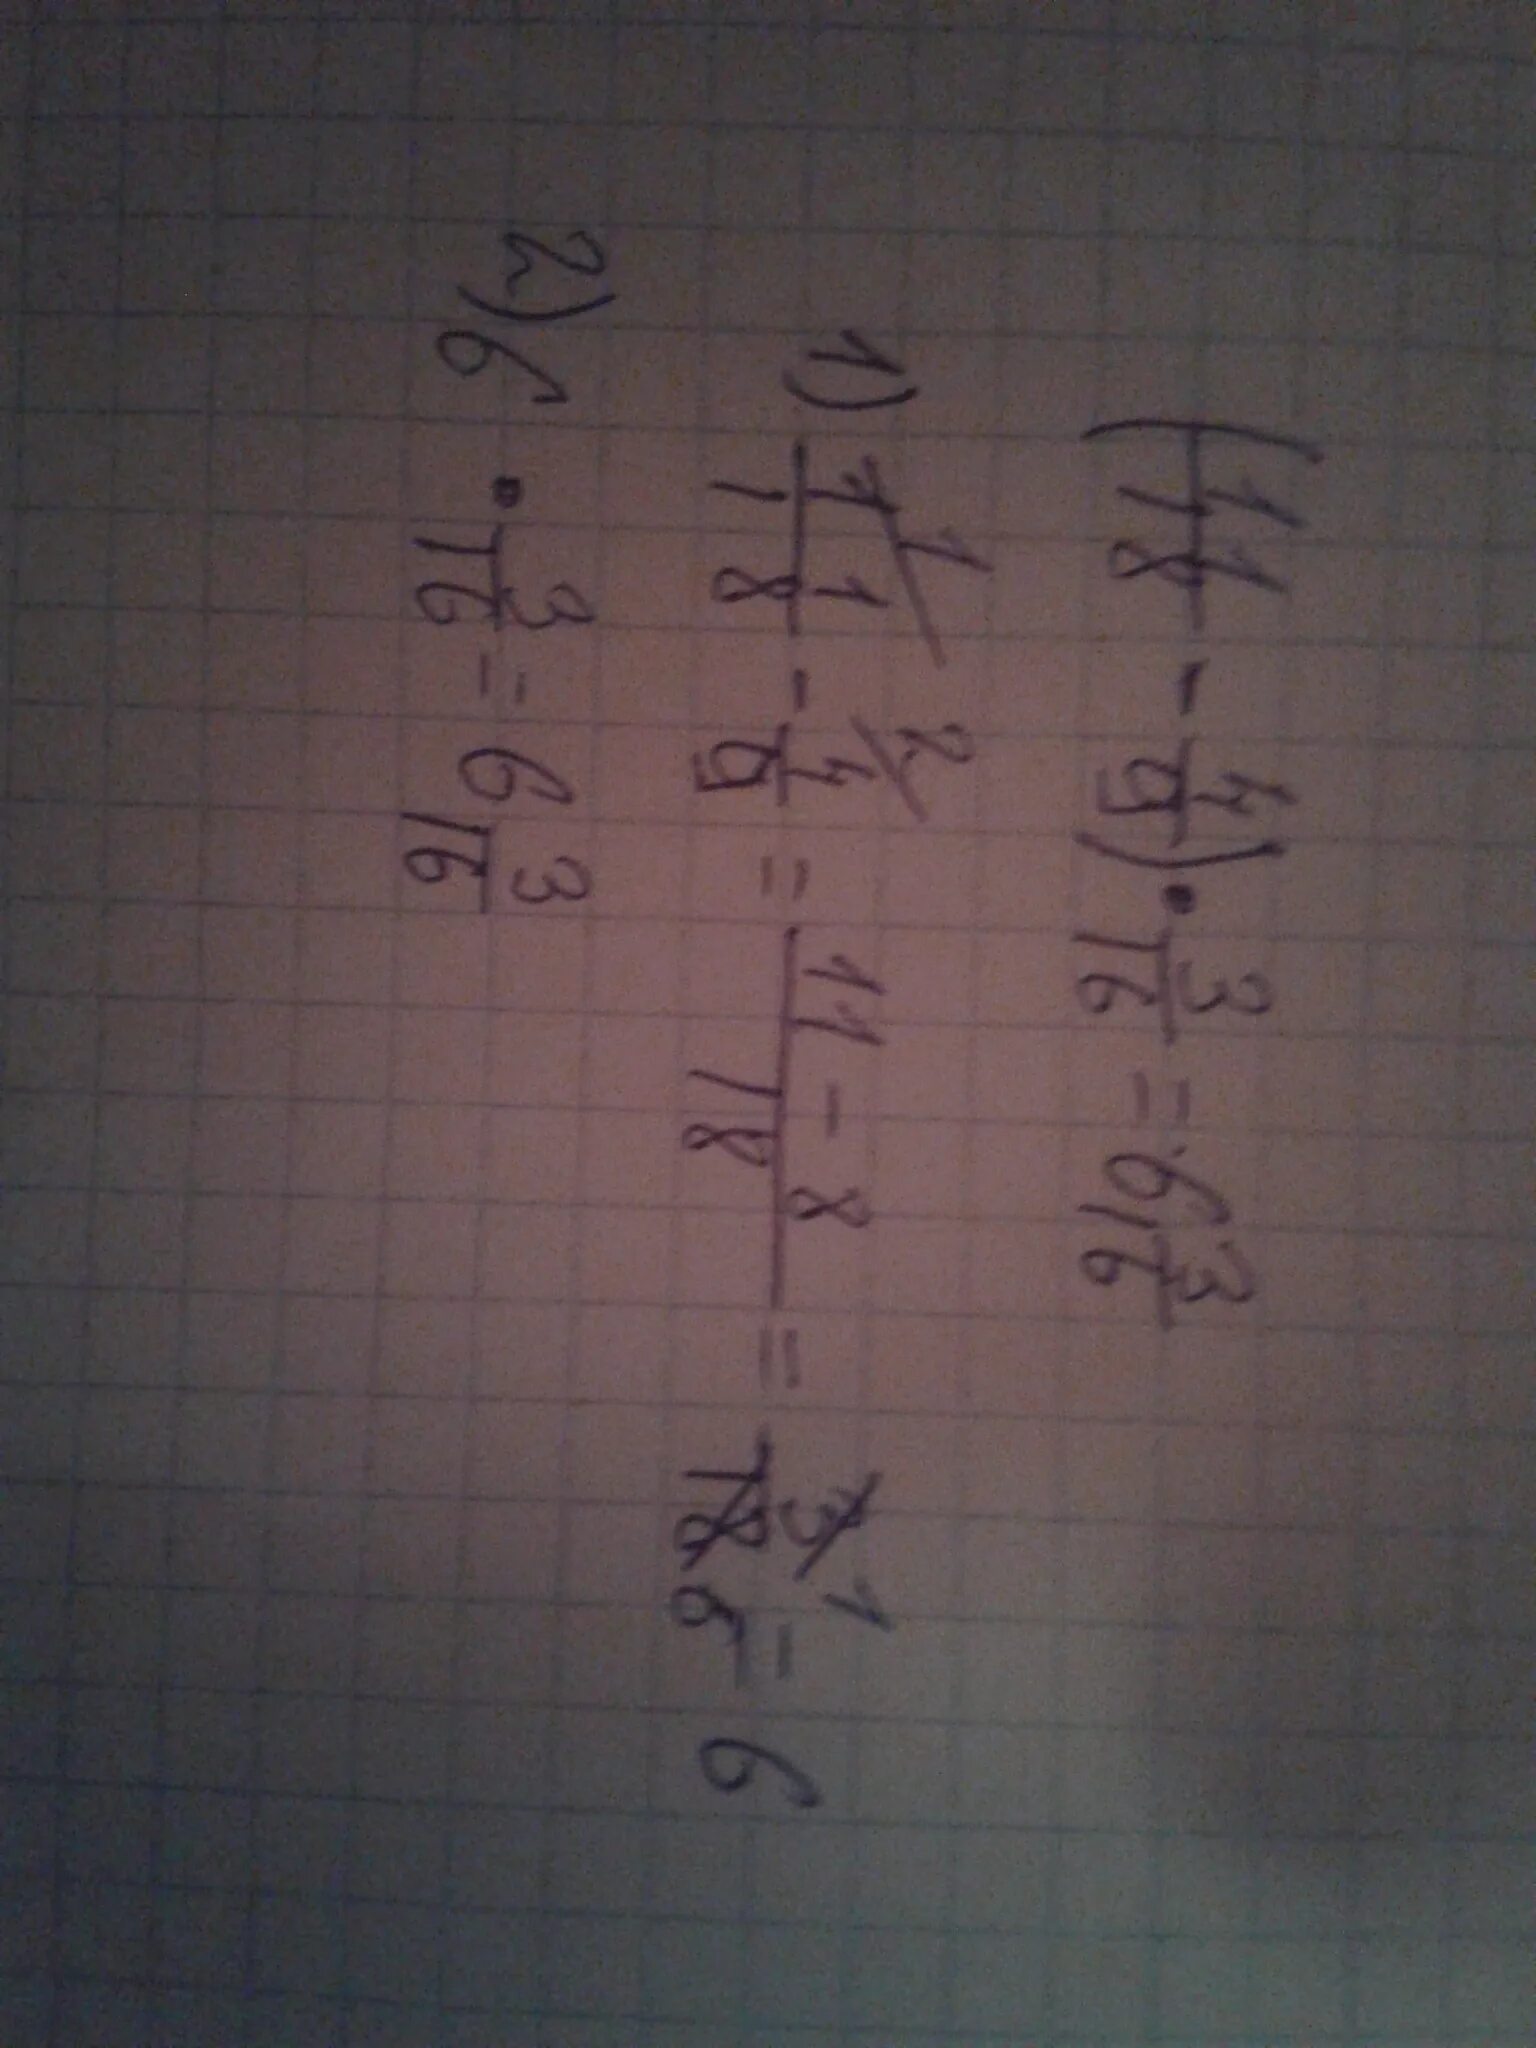 (11/18 - 4/9) • 3/16 = 6 3/16
1) 11/18 /1 - 4/9 /2 = 11 - 8/18 = 3/18 1/6 = 6
2) 6 • 3/16 = 6 3/16